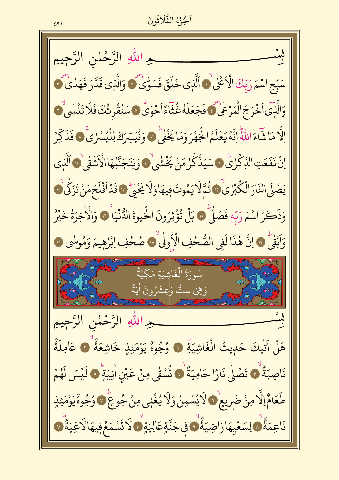 اَلْجُزْءُ الثَّلَاثُونَ
بِسْمِ اللّٰهِ الرَّحْمٰنِ الرَّحِيمِ
سَبِّحِ اسْمَ رَبِّكَ الْاَعْلٰىۙ الَّذِى خَلَقَ فَسَوّٰىۙ وَالَّذِى قَدَّرَ فَهَدٰىۙ
وَالَّذِى اَخْرَجَ الْمَرْعٰىۙ فَجَعَلَهُ غُثَٓاءً اَحْوٰىۜ سَنُقْرِئُكَ فَلَا تَنْسٰىۙ
اِلَّا مَا شَٓاءَ اللّٰهُۜ اِنَّهُ يَعْلَمُ الْجَهْرَ وَمَا يَخْفٰىۜ وَنُيَسِّرُكَ لِلْيُسْرٰىۚ فَذَكِّرْ
اِنْ نَفَعَتِ الذِّكْرٰىۜ سَيَذَّكَّرُ مَنْ يَخْشٰىۙ وَيَتَجَنَّبُهَا الْاَشْقٰىۙ اَلَّذِى
يَصْلَى النَّارَ الْكُبْرٰىۚ ثُمَّ لَا يَمُوتُ فِيهَا وَلَا يَحْيٰىۜ قَدْ اَفْلَحَ مَنْ تَزَكّٰىۙ
وَذَكَرَ اسْمَ رَبِّهِ فَصَلّٰىۜ بَلْ تُؤْثِرُونَ الْحَيٰوةَ الدُّنْيَاۘ وَالْاٰخِرَةُ خَيْرٌ
وَاَبْقٰىۜ اِنَّ هٰذَا لَفِى الصُّحُفِ الْاُولٰىۙ صُحُفِ اِبْرٰهِيمَ وَمُوسٰى
سُورَةُ الْغَاشِيَةِ مَكِّيَّةٌ
وَهِىَ سِتٌّ وَعِشْرُونَ اٰيَةً
بِسْمِ اللّٰهِ الرَّحْمٰنِ الرَّحِيمِ
هَلْ اَتٰيكَ حَدِيثُ الْغَاشِيَةِۜ وُجُوهٌ يَوْمَئِذٍ خَاشِعَةٌۙ عَامِلَةٌ
نَاصِبَةٌۙ تَصْلٰى نَارًا حَامِيَةًۙ تُسْقٰى مِنْ عَيْنٍ اٰنِيَةٍۜ لَيْسَ لَهُمْ
طَعَامٌ اِلَّا مِنْ ضَرِيعٍۙ لَا يُسْمِنُ وَلَا يُغْنِى مِنْ جُوعٍۜ وُجُوهٌ يَوْمَئِذٍ
نَاعِمَةٌۙ لِسَعْيِهَا رَاضِيَةٌۙ فِى جَنَّةٍ عَالِيَةٍۙ لَا تَسْمَعُ فِيهَا لَاغِيَةًۜ